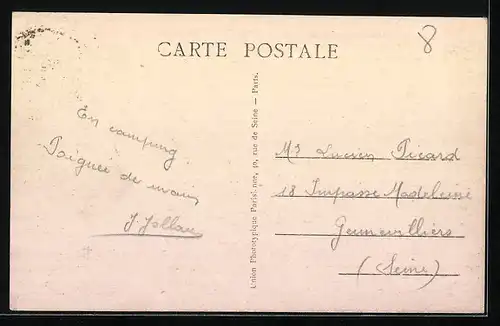 CARTE POSTALE
8
En camping
Poignée de main
J. Jollau
Union Phototypique Parisienne, 10, rue de Seine — Paris.
Mr Lucien Picard
18 Impasse Madeleine
Gennevilliers
(Seine)